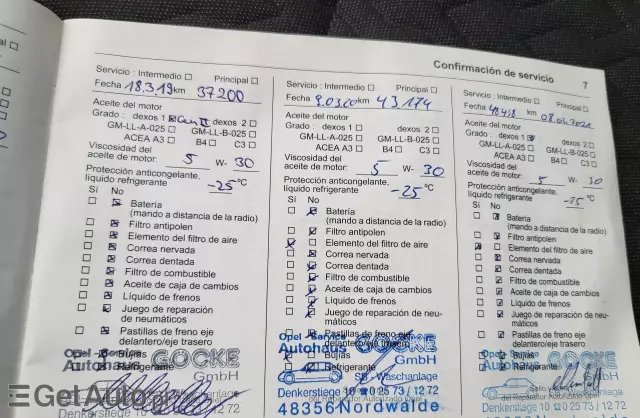 Confirmación de servicio 7
Servicio : Intermedio Principal
Fecha 18.3.19 km 37200
Aceite del motor
Grado : dexos 1 dexos 2
GM-LL-A-025 GM-LL-B-025
ACEA A3 B4 C3
Viscosidad del
aceite de motor: 5 W- 30
Protección anticongelante,
líquido refrigerante -25 °C
Sí No
Batería
(mando a distancia de la radio)
Filtro antipolen
Elemento del filtro de aire
Correa nervada
Correa dentada
Filtro de combustible
Aceite de caja de cambios
Líquido de frenos
Juego de reparación
de neumáticos
Pastillas de freno eje
delantero/eje trasero
Bujías
Refrigerante
Opel - Service
Autohaus GÖCKE
GmbH
Denkerstiege
12 72
Servicio : Intermedio Principal
Fecha 9.03.20 km 43174
Aceite del motor
Grado : dexos 1 dexos 2
GM-LL-A-025 GM-LL-B-025
ACEA A3 B4 C3
Viscosidad del
aceite de motor: 5 W- 30
Protección anticongelante,
líquido refrigerante -25 °C
Sí No
Batería
(mando a distancia de la radio)
Filtro antipolen
Elemento del filtro de aire
Correa nervada
Correa dentada
Filtro de combustible
Aceite de caja de cambios
Líquido de frenos
Juego de reparación de neu-
máticos
Pastillas de freno eje
delantero/eje trasero
Bujías
Refrigerante
Opel - Service
Autohaus GÖCKE
GmbH
SB - Waschanlage
Denkerstiege 10 0 25 73 / 12 72
48356 Nordwalde
Servicio : Intermedio Principal
Fecha km
Aceite del motor
Grado : dexos 1 dexos 2
GM-LL-A-025 GM-LL-B-025
ACEA A3 B4 C3
Viscosidad del
aceite de motor: 5 W- 30
Protección anticongelante,
líquido refrigerante °C
Sí No
Batería
(mando a distancia de la radio)
Filtro antipolen
Elemento del filtro de aire
Correa nervada
Correa dentada
Filtro de combustible
Aceite de caja de cambios
Líquido de frenos
Juego de reparación de neu-
máticos
Pastillas de freno eje
delantero/eje trasero
Bujías
Refrigerante
Opel - Service
Autohaus GÖCKE
GmbH
Denkerstiege 10 0 25 73 / 12 72
GetAuto